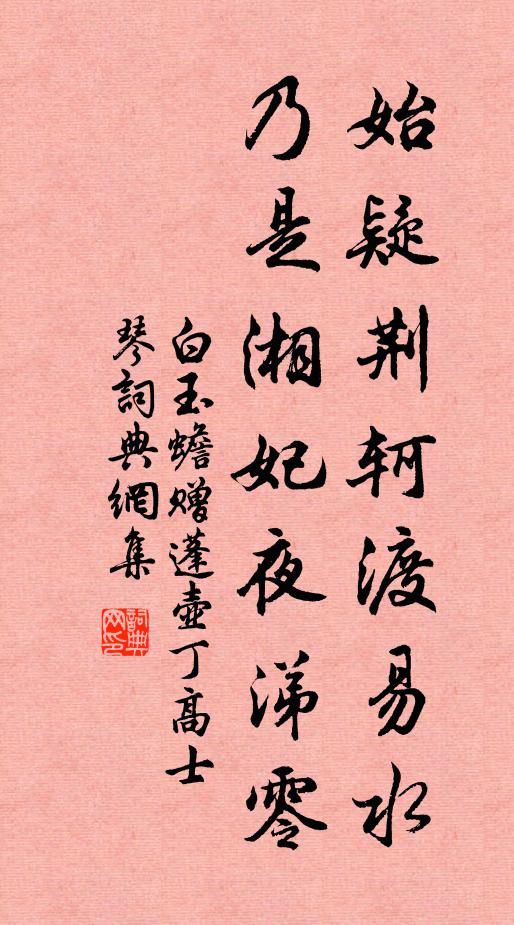 始疑荆轲渡易水
乃是湘妃夜涕零
白玉蟾赠蓬壶丁高士
琴詞典網集
詞典网印